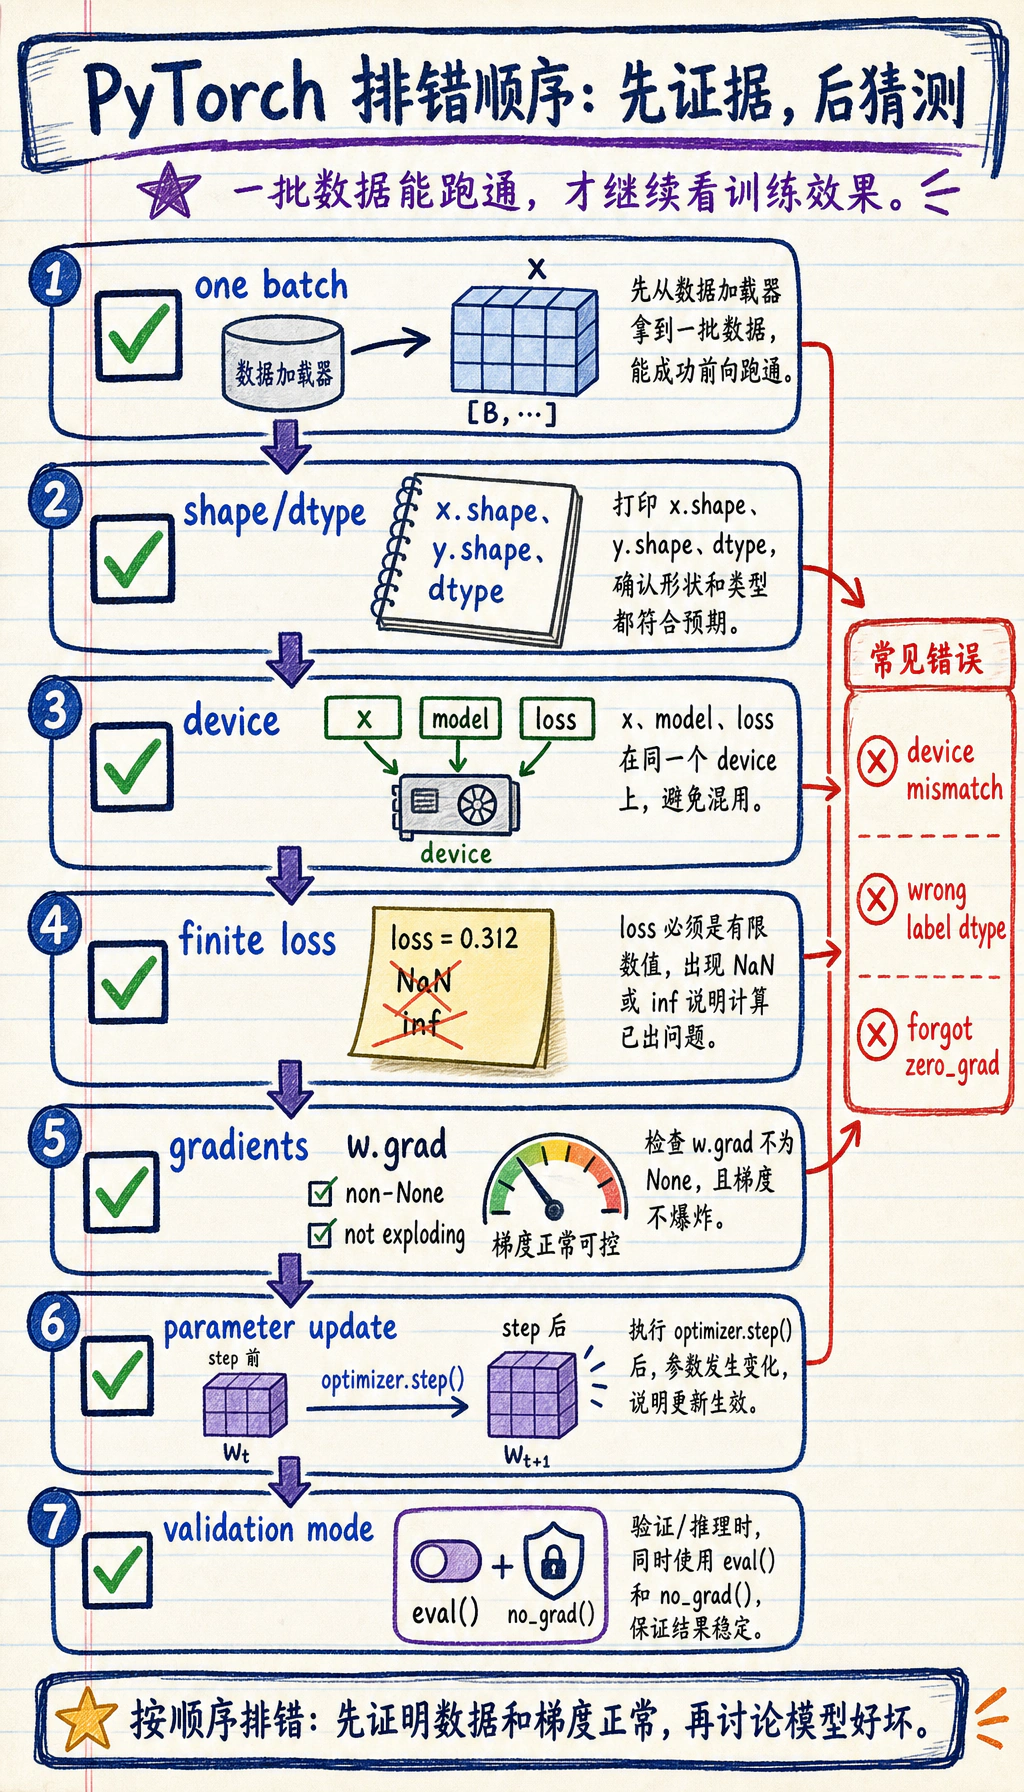 PyTorch 排错顺序：先证据，后猜测
一批数据能跑通，才继续看训练效果。
1
one batch
数据加载器
x
[B, ···]
先从数据加载器
拿到一批数据，
能成功前向跑通。
2
shape/dtype
x.shape、
y.shape、
dtype
打印 x.shape、
y.shape、dtype，
确认形状和类型
都符合预期。
3
device
x
model
loss
device
x、model、loss
在同一个 device
上，避免混用。
4
finite loss
loss = 0.312
NaN
inf
loss 必须是有限
数值，出现 NaN
或 inf 说明计算
已出问题。
5
gradients
w.grad
non-None
not exploding
梯度正常可控
检查 w.grad 不为
None，且梯度
不爆炸。
6
parameter update
step 前
Wt
optimizer.step()
step 后
Wt+1
执行 optimizer.step()
后，参数发生变化，
说明更新生效。
7
validation mode
eval()
+
no_grad()
验证/推理时，
同时使用 eval()
和 no_grad()，
保证结果稳定。
常见错误
device
mismatch
wrong
label dtype
forgot
zero_grad
按顺序排错：先证明数据和梯度正常，再讨论模型好坏。